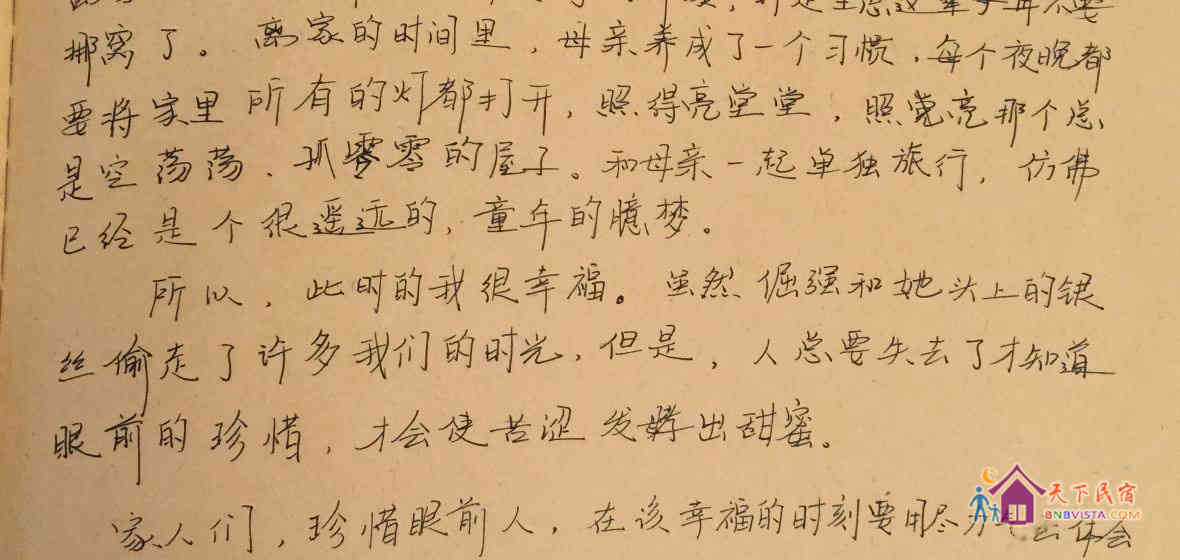 挪窝了。离家的时间里，母亲养成了一个习惯，每个夜晚都
要将家里所有的灯都打开，照得亮堂堂，照亮那个总
是空荡荡、孤零零的屋子。和母亲一起单独旅行，仿佛
已经是个很遥远的，童年的臆梦。
所以，此时的我很幸福。虽然倔强和她头上的银
丝偷走了许多我们的时光，但是，人总要失去了才知道
眼前的珍惜，才会使苦涩发酵出甜蜜。
家人们，珍惜眼前人，在该幸福的时刻要用尽
体会
天下民宿
BNBVISTA.COM